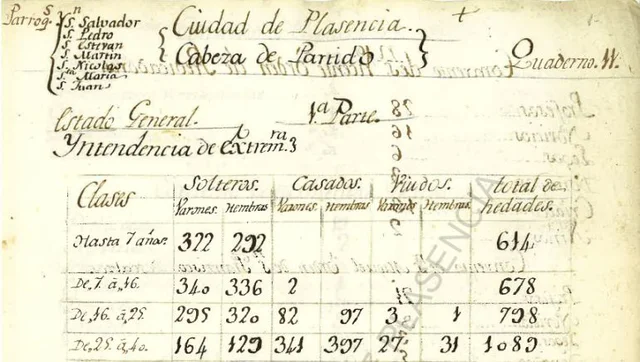 Parrog.s Yn
S. Salvador
S. Pedro
S. Estevan
S. Martin
S. Nicolas
Sta Maria
S. Juan
Ciudad de Plasencia.
Cabeza de Partido
Quaderno. 11.
Estado General. 1.a Parte.
Yntendencia de Extrem.ra
Clases Solteros. Casados. Viudos. total de hedades.
Varones. Hembras Varones Hembras Varones Hembras
Hasta 7 años. 322 292 614
De 7. à 16. 340 336 2 678
De 16. à 25. 295 320 82 97 3 1 798
De 25. à 40. 164 129 341 397 27 31 1089